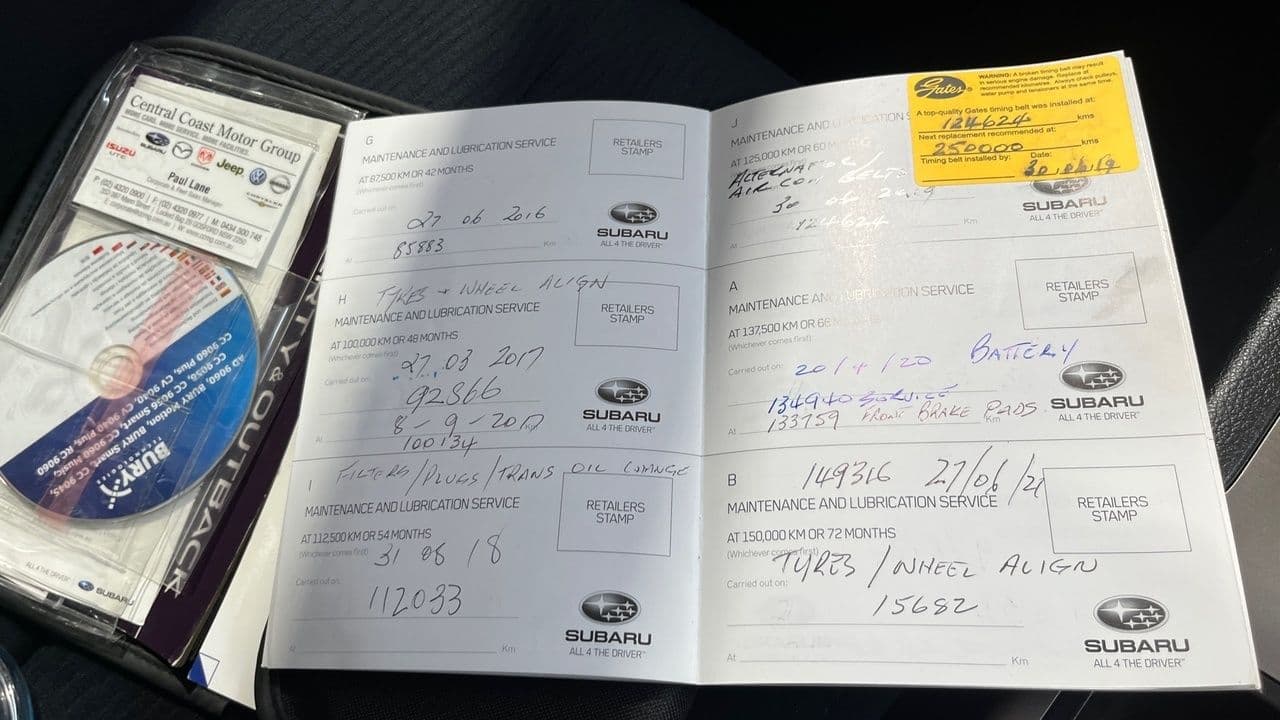 Central Coast Motor Group
MORE CARE. MORE SERVICE. MORE FACILITIES.
SUBARU
ISUZU
UTE
Jeep
CHRYSLER
Paul Lane
Corporate & Fleet Sales Manager
P: (02) 4320 0900 | F: (02) 4320 0977 | M: 0434 500 748
BURY
TECHNOLOGIES
OUTBACK
ALL 4 THE DRIVER
SUBARU
G
MAINTENANCE AND LUBRICATION SERVICE
AT 87,500 KM OR 42 MONTHS
(Whichever comes first)
RETAILERS
STAMP
Carried out on:
27 06 2016
At 85883 Km
SUBARU
ALL 4 THE DRIVER
H TYRES + WHEEL ALIGN
MAINTENANCE AND LUBRICATION SERVICE
AT 100,000 KM OR 48 MONTHS
(Whichever comes first)
RETAILERS
STAMP
Carried out on: 27.03 2017
92866
8-9-2017
At 100134
SUBARU
ALL 4 THE DRIVER
I FILTERS/PLUGS/TRANS OIL CHANGE
MAINTENANCE AND LUBRICATION SERVICE
AT 112,500 KM OR 54 MONTHS
(Whichever comes first)
RETAILERS
STAMP
31 08 18
Carried out on:
112033
At Km
SUBARU
ALL 4 THE DRIVER
J
MAINTENANCE AND LU
AT 125,000 KM OR 60 MONTHS
ALTERNATOR/
AIRCON BELTS
30 06 2019
At 124624 Km
SUBARU
ALL 4 THE DRIVER
Gates
WARNING: A broken timing belt may result
in serious engine damage. Replace at
recommended kilometres. Always check pulleys,
water pump and tensioners at the same time.
A top-quality Gates timing belt was installed at:
124624 kms
Next replacement recommended at:
250000 kms
Timing belt installed by: Date:
30.06.19
A
MAINTENANCE AND LUBRICATION SERVICE
AT 137,500 KM OR 66 MONTHS
(Whichever comes first)
RETAILERS
STAMP
Carried out on: 20/4/20 BATTERY
134940 SERVICE
At 133759 FRONT BRAKE PADS
SUBARU
ALL 4 THE DRIVER
B 149316 27/06/21
MAINTENANCE AND LUBRICATION SERVICE
AT 150,000 KM OR 72 MONTHS
(Whichever comes first)
RETAILERS
STAMP
TYRES/WHEEL ALIGN
Carried out on:
15682
At Km
SUBARU
ALL 4 THE DRIVER